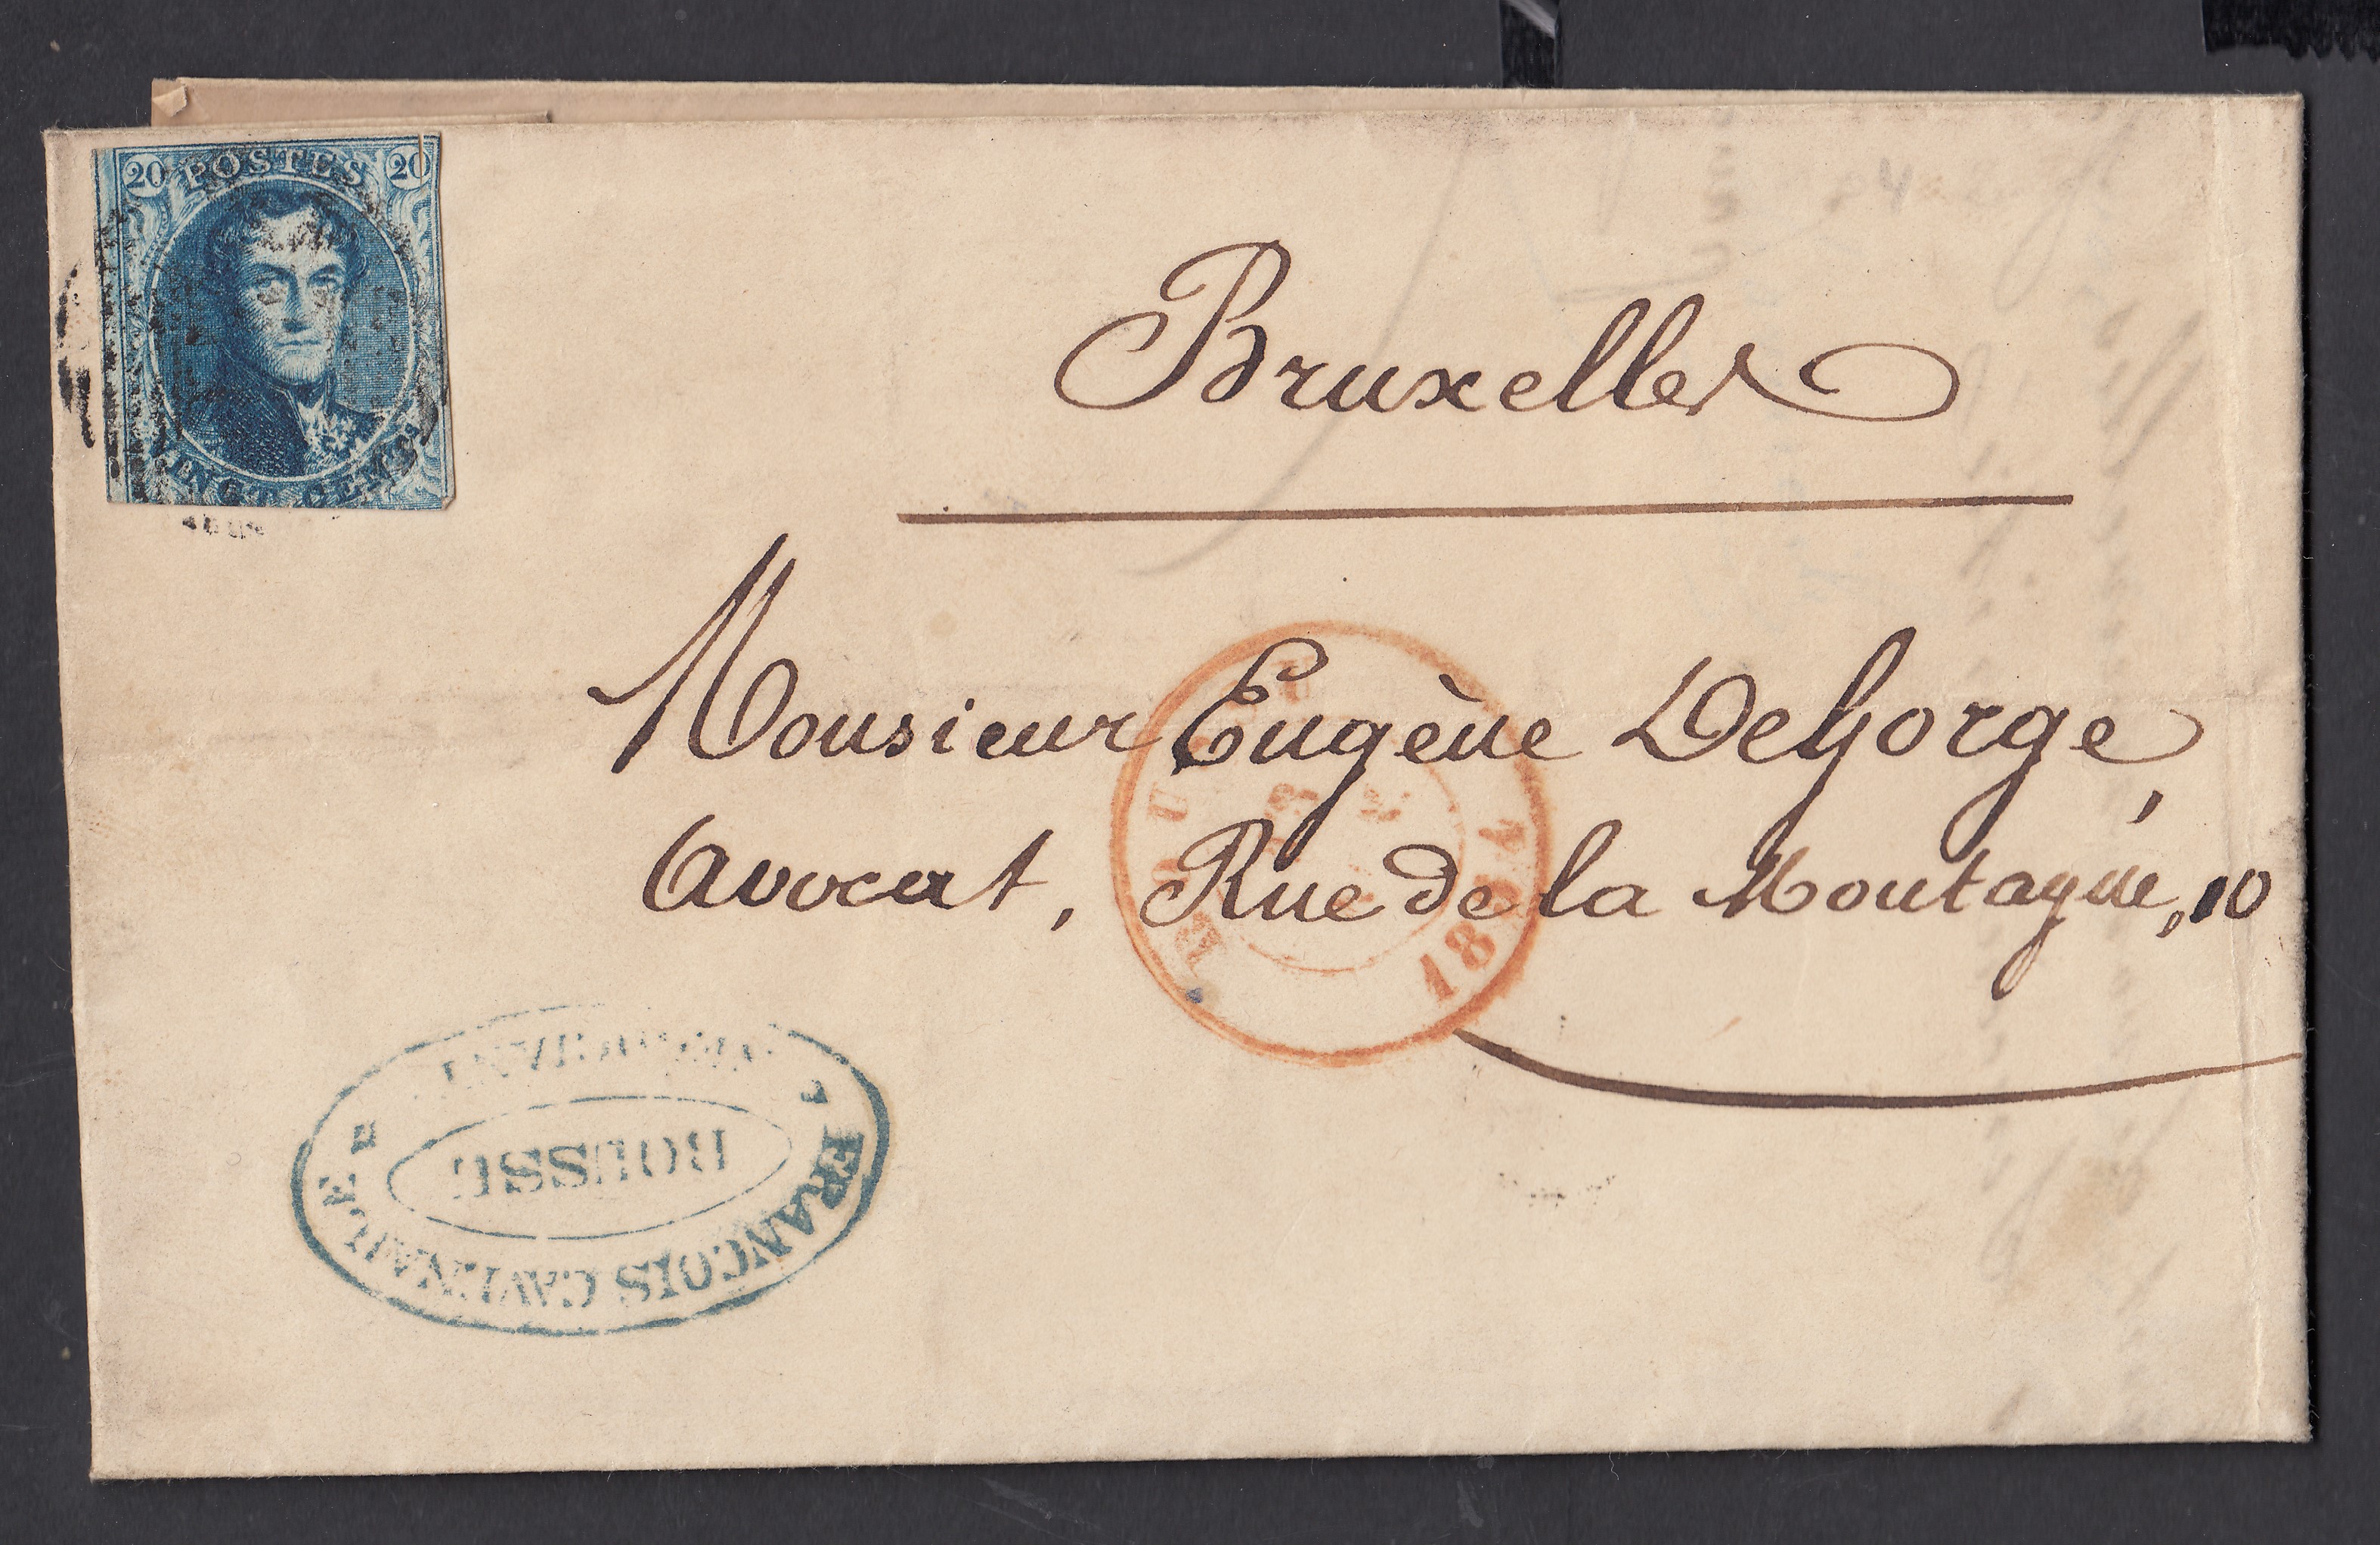 20 POSTES 20
VINGT CENTS
Bruxelles
Monsieur Eugène DeGorge,
Avocat, Rue de la Montagne, 10
BOUSSU
185
FRANCOIS CAVENAILE
BOUSSU